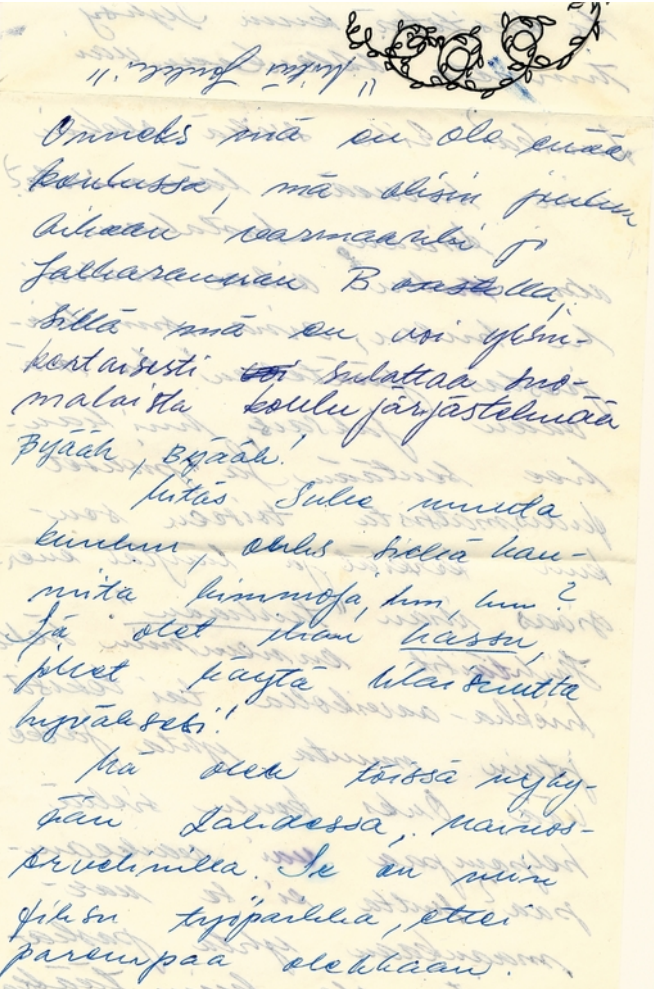 "Mitäs Jouluu."
Onneks mä en ole enää
koulussa, mä olisin joulun
aikaan varmaankin jo
Jalkarannan B osastolla,
sillä mä en voi yksin-
kertaisesti sulattaa suo-
malaista koulujärjästelmää
Byääh, Byääh!
Mitäs Sulle muuta
kuuluu, onks siellä kau-
niita kimmoja, hm, hm?
Sä olet ihan hassu,
jollet käytä tilaisuutta
hyväksesi!
Mä olen töissä nyky-
ään Lahdessa, Mainos-
Se on niin
työpaikka, ettei
parempaa olekkaan.